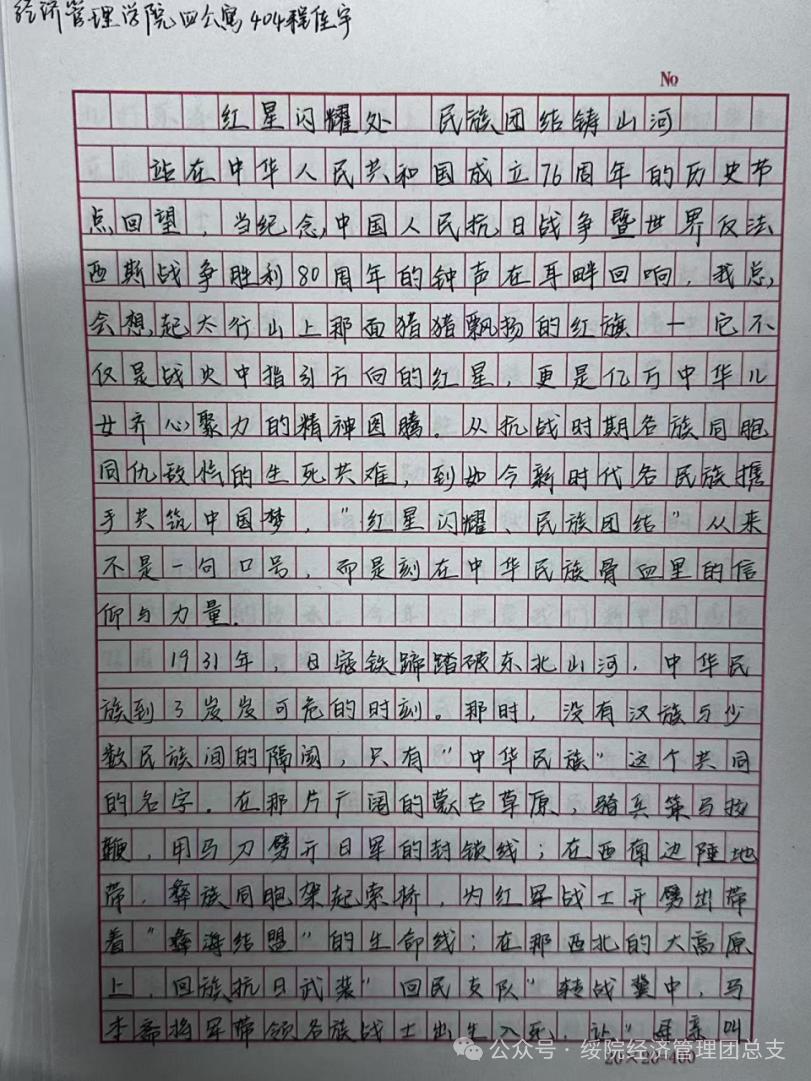 经济管理学院四公寓404程佳宇
No
红星闪耀处 民族团结铸山河
站在中华人民共和国成立76周年的历史节
点回望，当纪念中国人民抗日战争暨世界反法
西斯战争胜利80周年的钟声在耳畔回响，我总
会想起太行山上那面猎猎飘扬的红旗一它不
仅是战火中指引方向的红星，更是亿万中华儿
女齐心聚力的精神图腾。从抗战时期各族同胞
同仇敌忾的生死共难，到如今新时代各民族携
手共筑中国梦，"红星闪耀、民族团结"从来
不是一句口号，而是刻在中华民族骨血里的信
仰与力量.
1931年，日寇铁蹄踏破东北山河，中华民
族到了岌岌可危的时刻。那时，没有汉族与少
数民族间的隔阂，只有"中华民族"这个共同
的名字.在那片广阔的蒙古草原，骑兵策马扬
鞭，用马刀劈开日军的封锁线；在西南边陲地
带，彝族同胞架起索桥，为红军战士开劈出带
着"彝海结盟"的生命线；在那西北的大高原
上，回族抗日武装"回民支队"转战冀中，马
本斋将军带领各族战士出生入死，让"母亲叫
公众号·绥院经济管理团总支
20×20=400